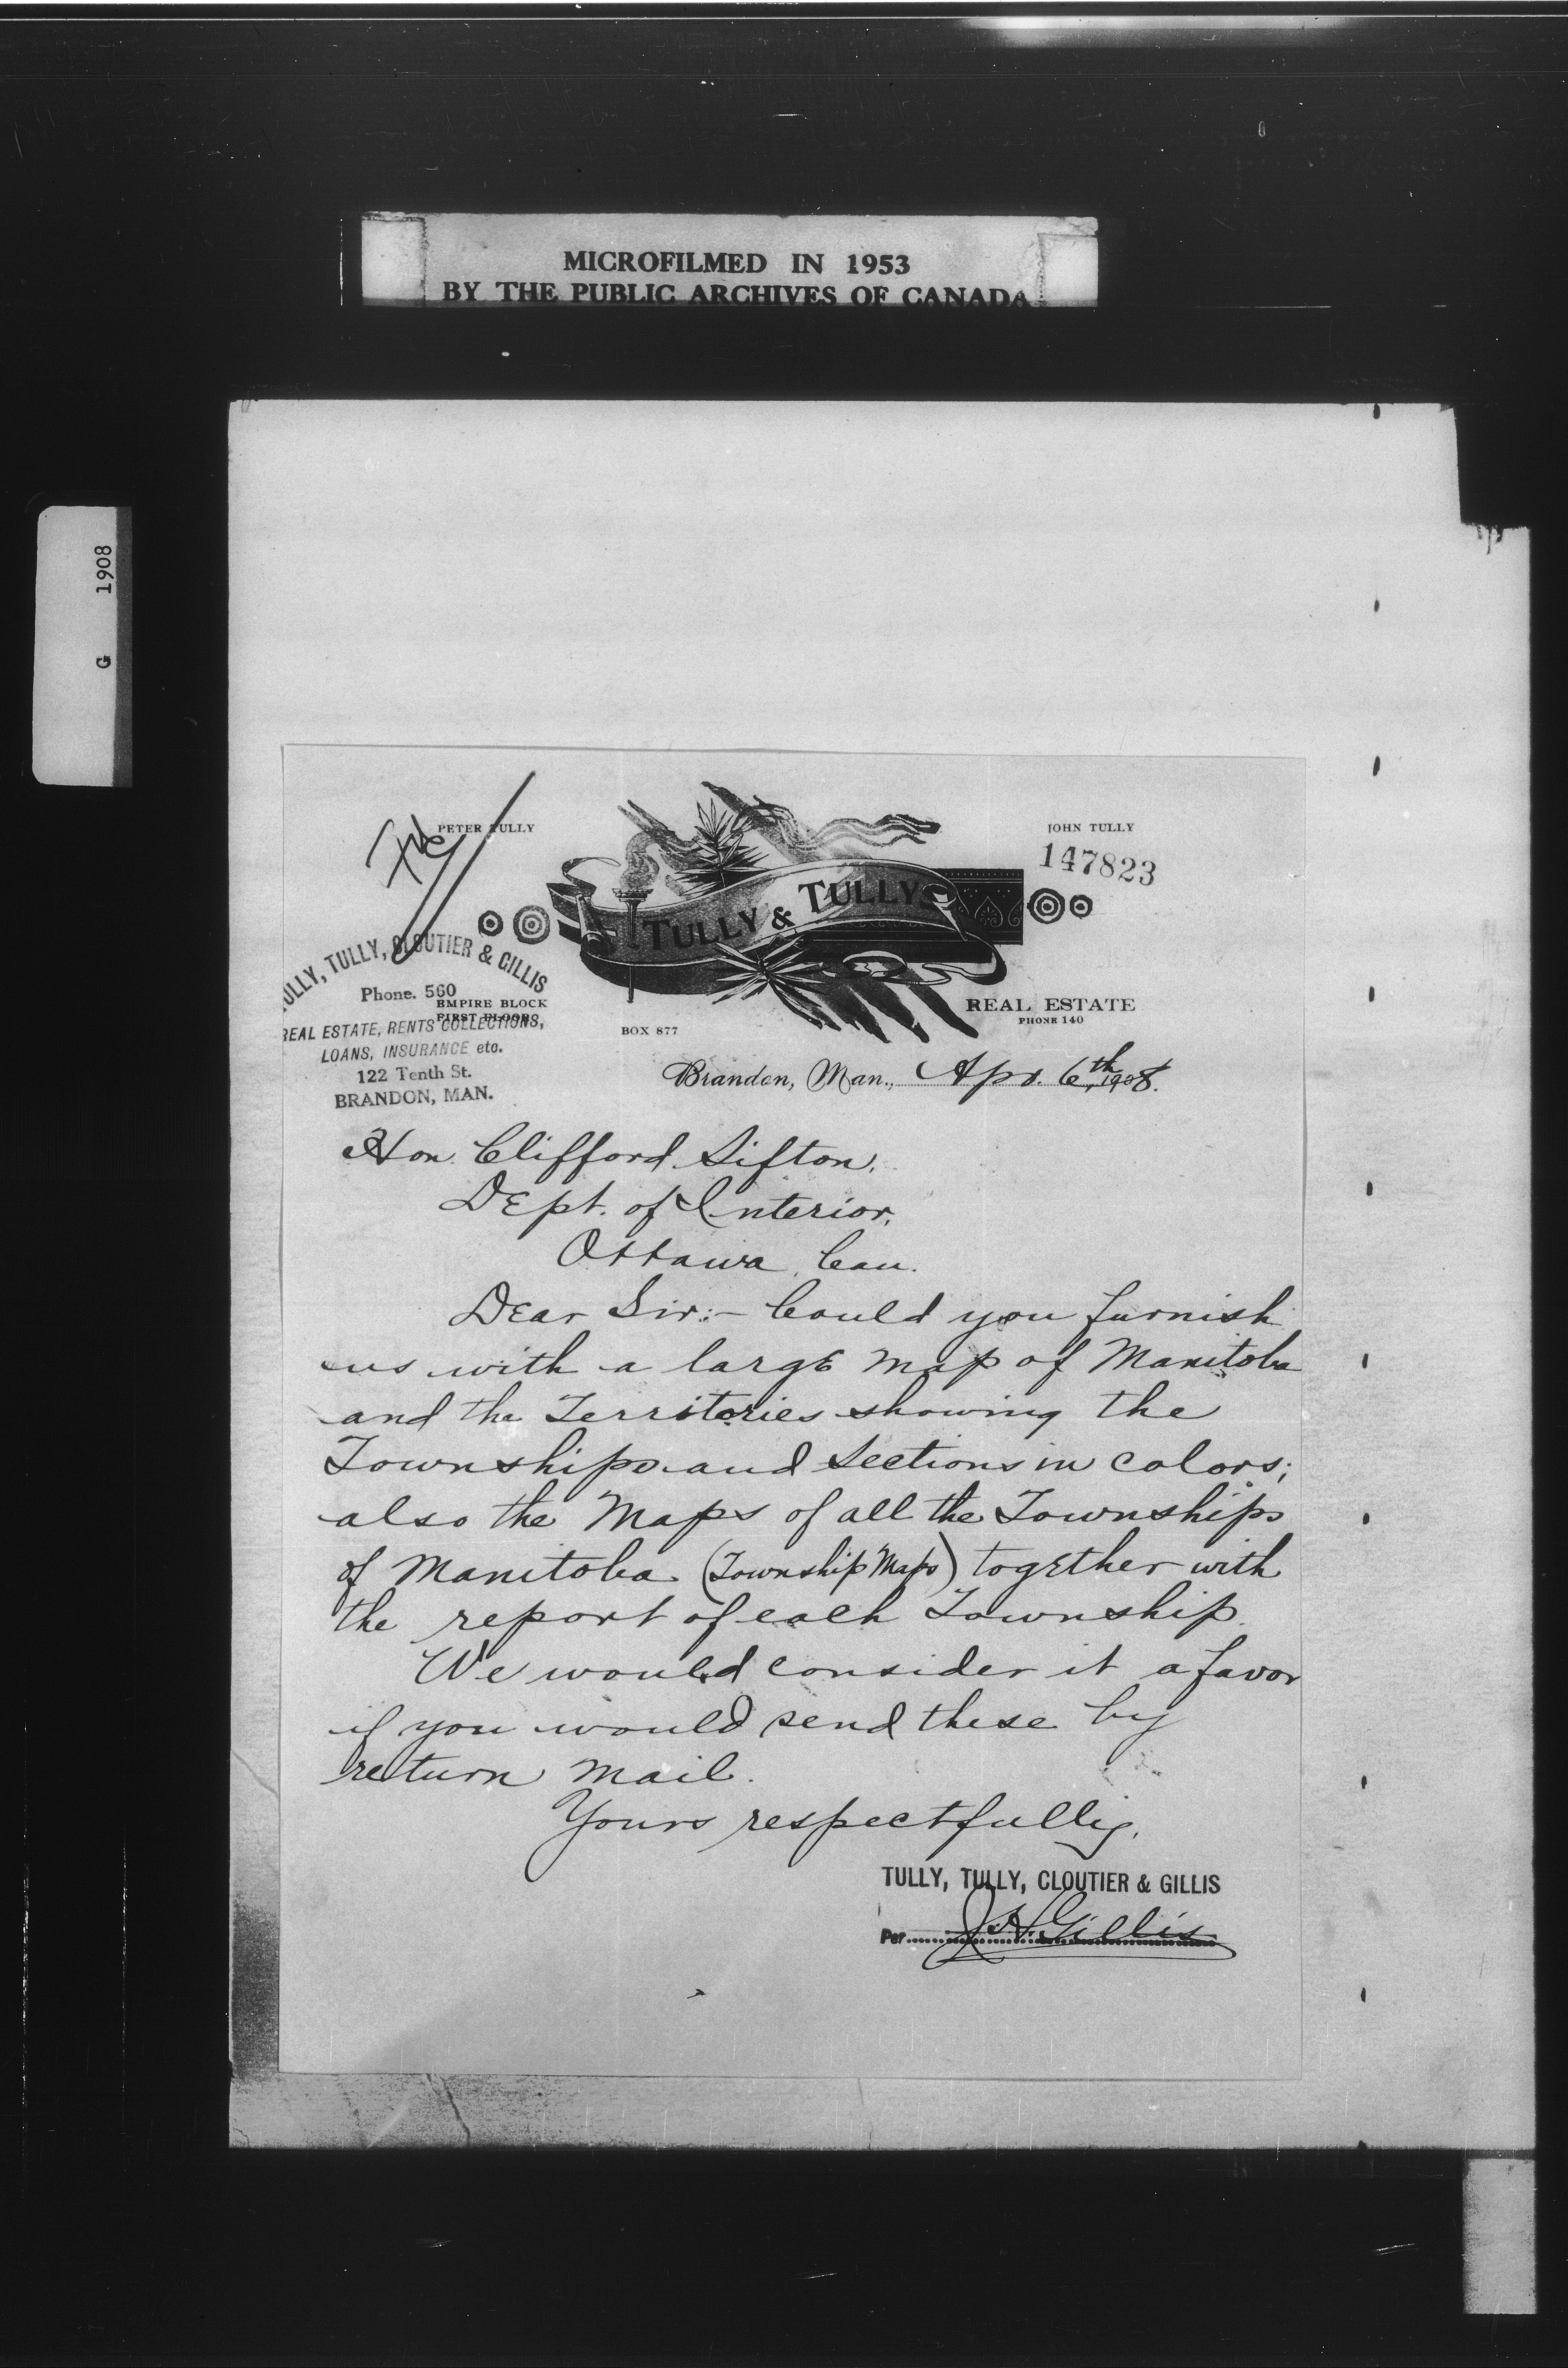 MICROFILMED IN 1953
BY THE PUBLIC ARCHIVES OF CANADA
G 1908
PETER TULLY
JOHN TULLY
147823
TULLY & TULLY
TULLY, TULLY, CLOUTIER & GILLIS
Phone. 560
EMPIRE BLOCK
FIRST FLOOR
REAL ESTATE, RENTS COLLECTIONS,
LOANS, INSURANCE etc.
122 Tenth St.
BRANDON, MAN.
BOX 877
REAL ESTATE
PHONE 140
Brandon, Man., Apr. 6th, 1908.
Hon. Clifford Sifton.
Dept. of Interior,
Ottawa, Can.
Dear Sir:- Could you furnish
us with a large map of Manitoba
and the Territories showing the
Townships and Sections in colors;
also the Maps of all the Townships
of Manitoba (Township Maps) together with
the report of each Township.
We would consider it a favor
if you would send these by
return mail.
Yours respectfully,
TULLY, TULLY, CLOUTIER & GILLIS
Per J. H. Gillis